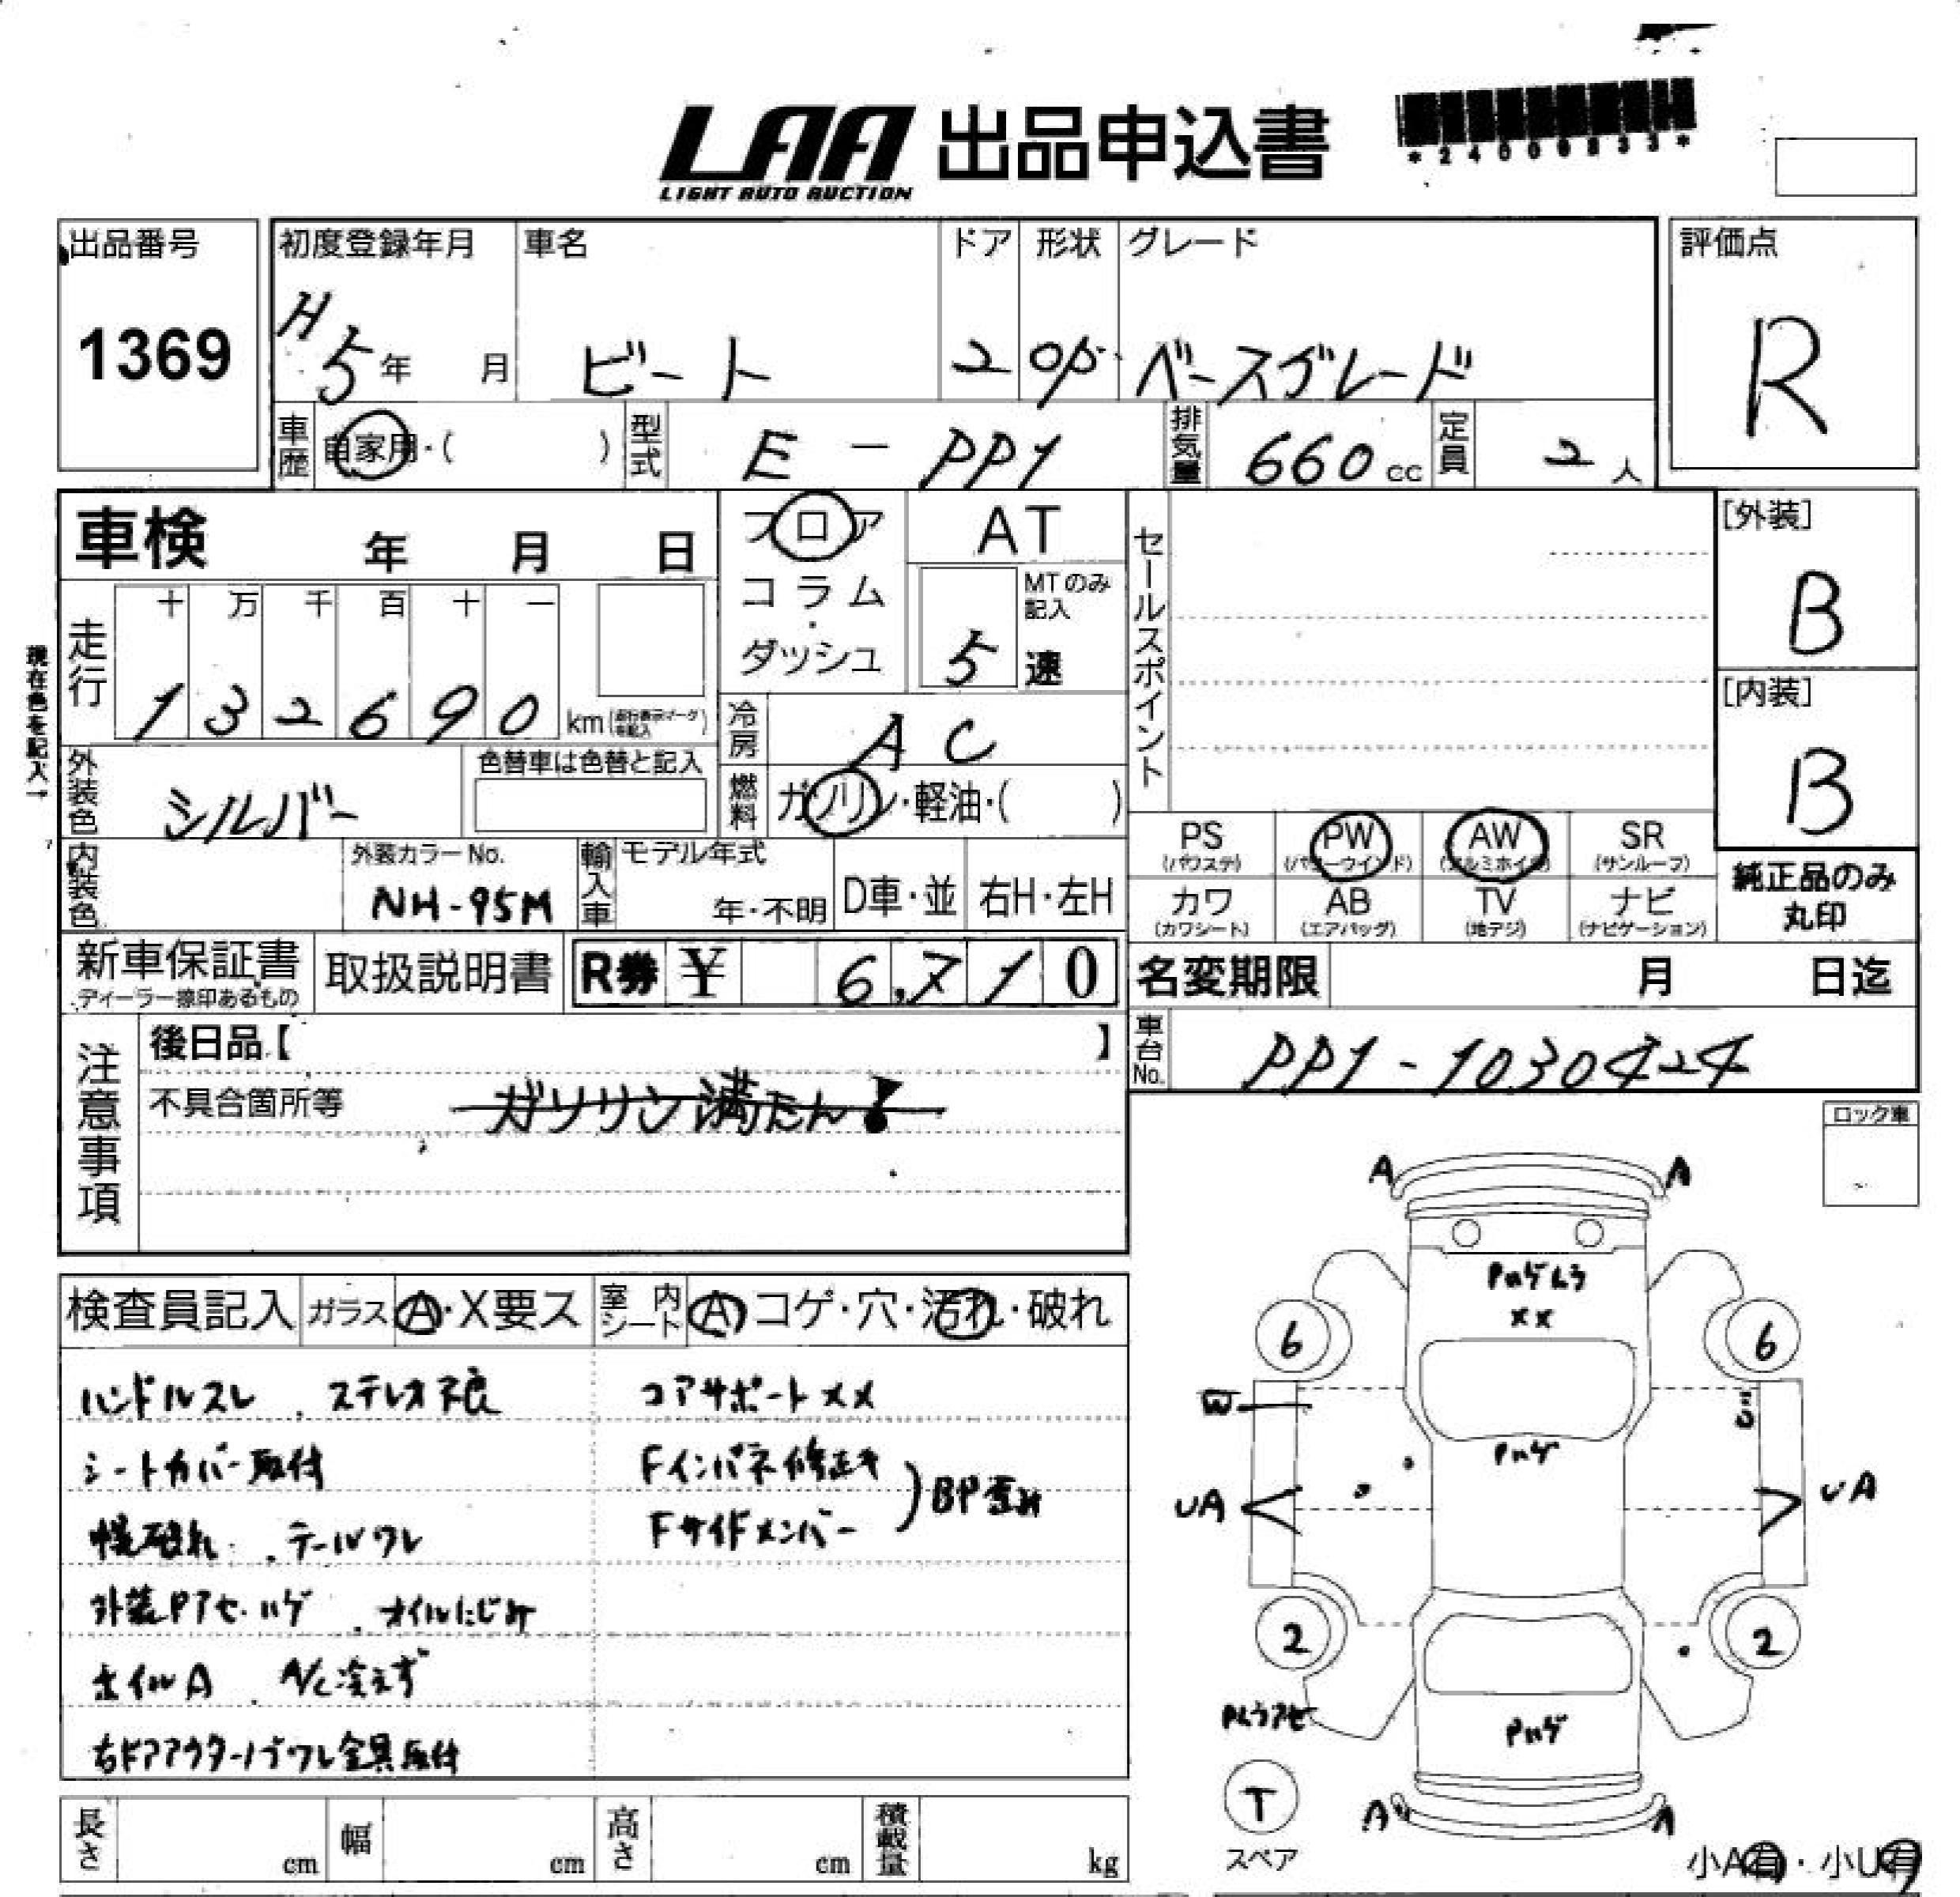 LAA 出品申込書
LIGHT AUTO AUCTION
出品番号 初度登録年月 車名 ドア 形状 グレード 評価点
1369 H5年 月 ビート 2 OP ベースグレード R
車歴 自家用・( ) 型式 E - PP1 排気量 660cc 定員 2人
車検 年 月 日
フロア
コラム・
ダッシュ
AT
MTのみ記入
5速
セールスポイント
[外装]
B
[内装]
B
現在色を記入→
走行 十 万 千 百 十 一
1 3 2 6 9 0 km
冷房 AC
外装色 シルバー 色替車は色替と記入
燃料 ガソリン・軽油・( )
PS (パワステ) PW (パワーウインド) AW (アルミホイル) SR (サンルーフ)
カワ (カワシート) AB (エアバッグ) TV (地デジ) ナビ (ナビゲーション)
純正品のみ
丸印
内装色 外装カラーNo. NH-95M 輸入車 モデル年式 年・不明 D車・並 右H・左H
新車保証書 取扱説明書 R券 ¥ 6,710
ディーラー捺印あるもの
名変期限 月 日迄
車台No. PP1-1030424
注意事項
後日品【 】
不具合箇所等 ガソリン満たん!
ロック車
検査員記入 ガラス A・X要ス 室内シート A コゲ・穴・汚れ・破れ
ハンドルスレ . ステレオ不良 コアサポートXX
シートカバー取付 Fインパネ修正キ
幌破れ . テールワレ Fサイドメンバー )BP歪み
外装Pアセ・ハゲ . オイルにじみ
ホイルA . A/C冷えず
右ドアアウターノブワレ金具取付
A A
Pハゲムラ
XX
6 6
W
Pハゲ
UA UA
2 2
Pムラアセ
Pハゲ
T
スペア
A A
小A有・小U有
長さ cm 幅 cm 高さ cm 積載量 kg